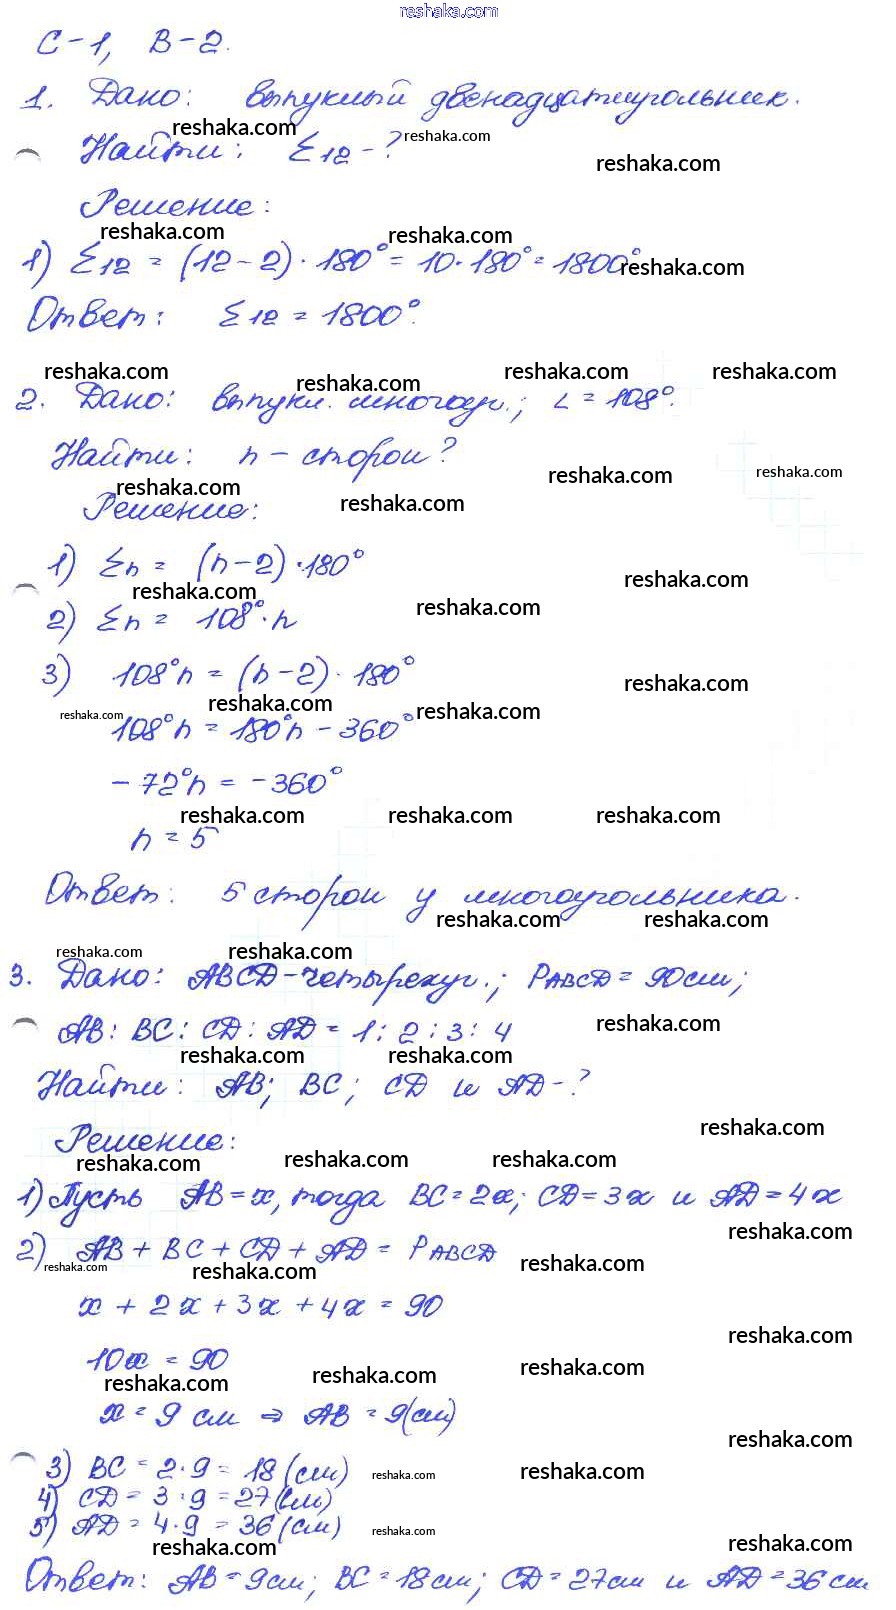 reshaka.com
С-1, В-2.
1. Дано: выпуклый двенадцатиугольник.
reshaka.com reshaka.com
Найти: Σ12 - ?
reshaka.com
Решение:
reshaka.com reshaka.com
1) Σ12 = (12-2)·180° = 10·180° = 1800°
reshaka.com
Ответ: Σ12 = 1800°.
reshaka.com reshaka.com reshaka.com reshaka.com
2. Дано: выпукл. многоуг.; ∠ = 108°.
Найти: n - сторон?
reshaka.com reshaka.com reshaka.com reshaka.com
Решение:
1) Σn = (n-2)·180°
reshaka.com reshaka.com reshaka.com
2) Σn = 108°·n
3) 108°n = (n-2)·180°
reshaka.com reshaka.com reshaka.com reshaka.com
108°n = 180°n - 360°
-72°n = -360°
reshaka.com reshaka.com reshaka.com
n = 5
Ответ: 5 сторон у многоугольника.
reshaka.com reshaka.com reshaka.com reshaka.com
3. Дано: ABCD-четырехуг.; PABCD = 90см;
AB : BC : CD : AD = 1 : 2 : 3 : 4
reshaka.com reshaka.com reshaka.com reshaka.com
Найти: AB; BC; CD и AD-?
Решение:
reshaka.com reshaka.com reshaka.com reshaka.com
1) Пусть AB = x, тогда BC = 2x; CD = 3x и AD = 4x
reshaka.com
2) AB + BC + CD + AD = PABCD
reshaka.com reshaka.com reshaka.com
x + 2x + 3x + 4x = 90
reshaka.com
10x = 90
reshaka.com reshaka.com reshaka.com
x = 9 см ⇒ AB = 9(см)
reshaka.com
3) BC = 2·9 = 18 (см)
reshaka.com reshaka.com
4) CD = 3·9 = 27(см)
5) AD = 4·9 = 36(см)
reshaka.com reshaka.com reshaka.com
Ответ: AB = 9см; BC = 18см; CD = 27см и AD = 36см